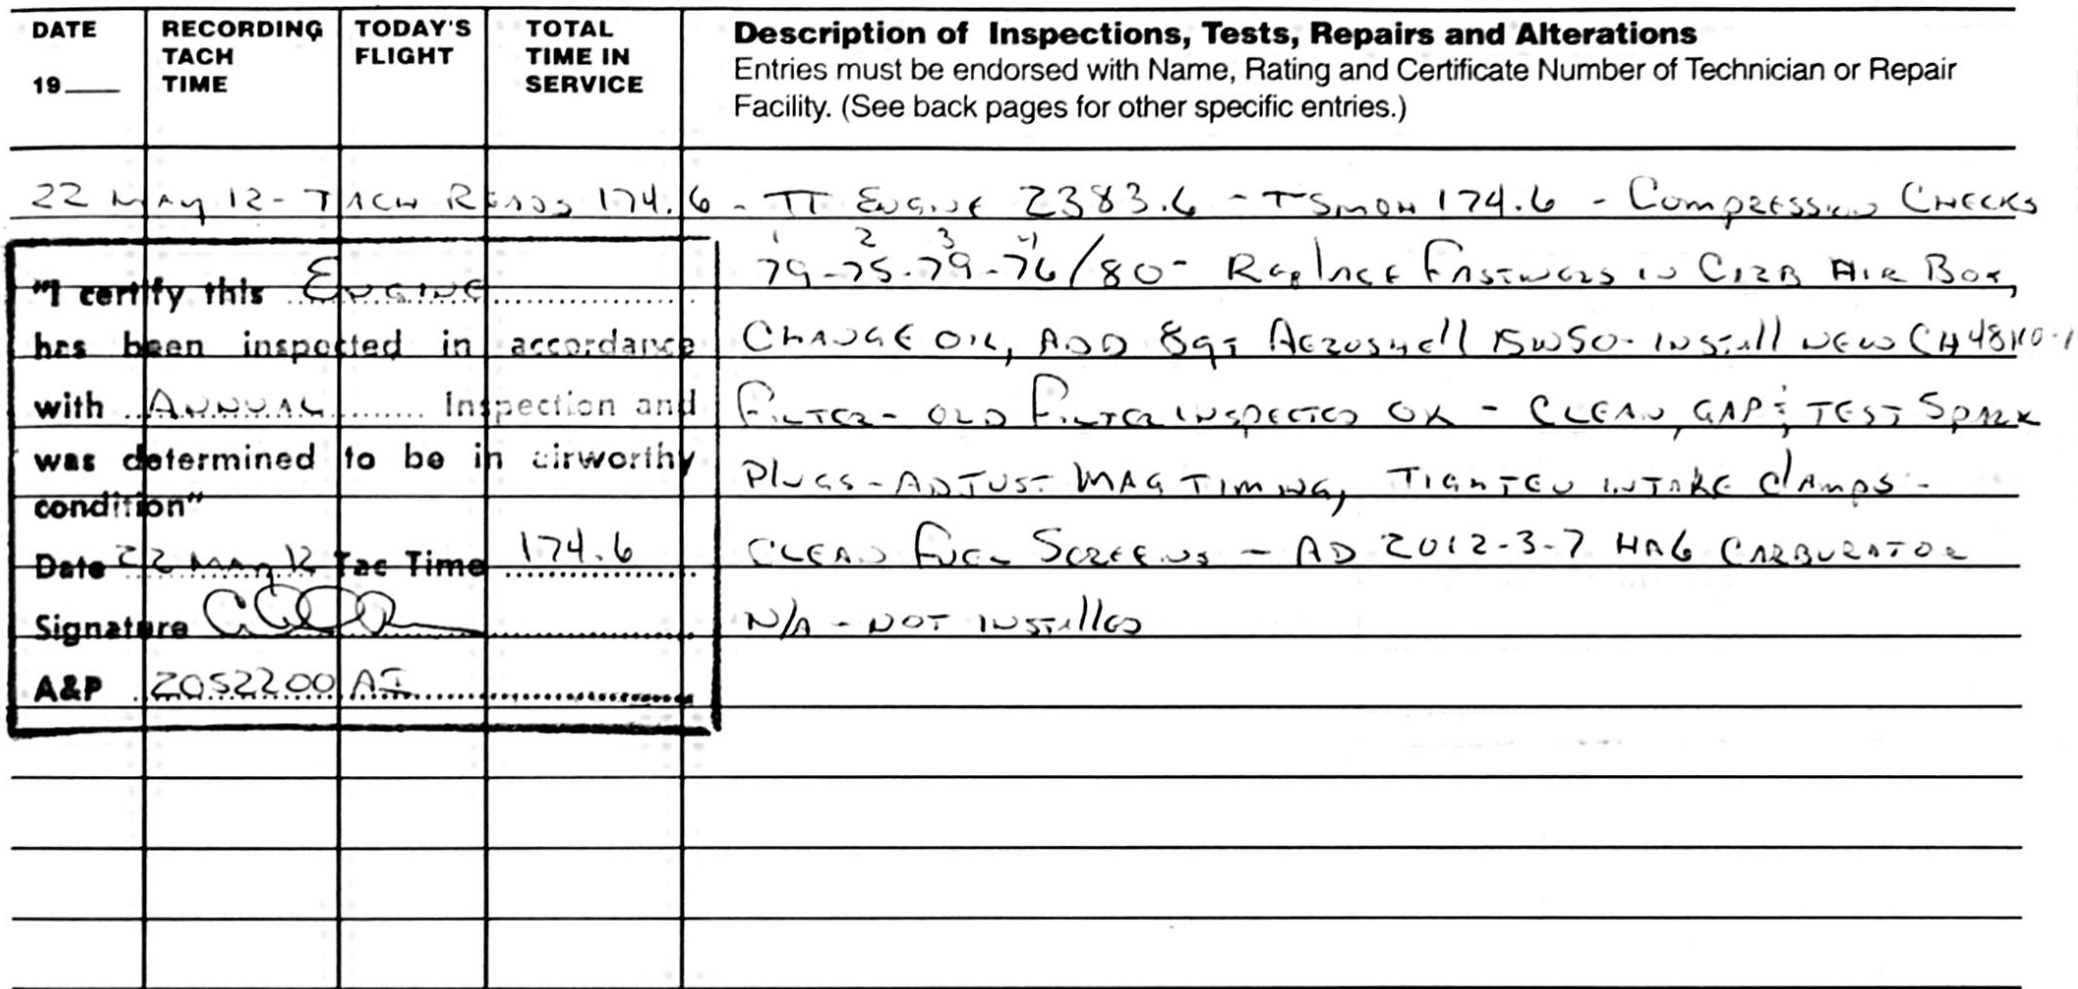 DATE
19
RECORDING
TACH
TIME
TODAY'S
FLIGHT
TOTAL
TIME IN
SERVICE
Description of Inspections, Tests, Repairs and Alterations
Entries must be endorsed with Name, Rating and Certificate Number of Technician or Repair
Facility. (See back pages for other specific entries.)
22 MAY 12 - TACH READS 174.6 - TT ENGINE 2383.6 - TSMOH 174.6 - COMPRESSION CHECKS
1 2 3 4
79-75-79-76/80 - REPLACE FASTNERS IN CARB AIR BOX,
CHANGE OIL, ADD 8qts AEROSHELL 15W50 - INSTALL NEW CH48110-1
FILTER - OLD FILTER INSPECTED OK - CLEAN, GAP & TEST SPARK
PLUGS - ADJUST MAG TIMING, TIGHTEN INTAKE CLAMPS -
CLEAN FUEL SCREENS - AD 2012-3-7 HA6 CARBURATOR
N/A - NOT INSTALLED
"I certify this ENGINE
has been inspected in accordance
with ANNUAL Inspection and
was determined to be in airworthy
condition"
Date 22 MAY 12 Tac Time 174.6
Signature
A&P 2052200 AI